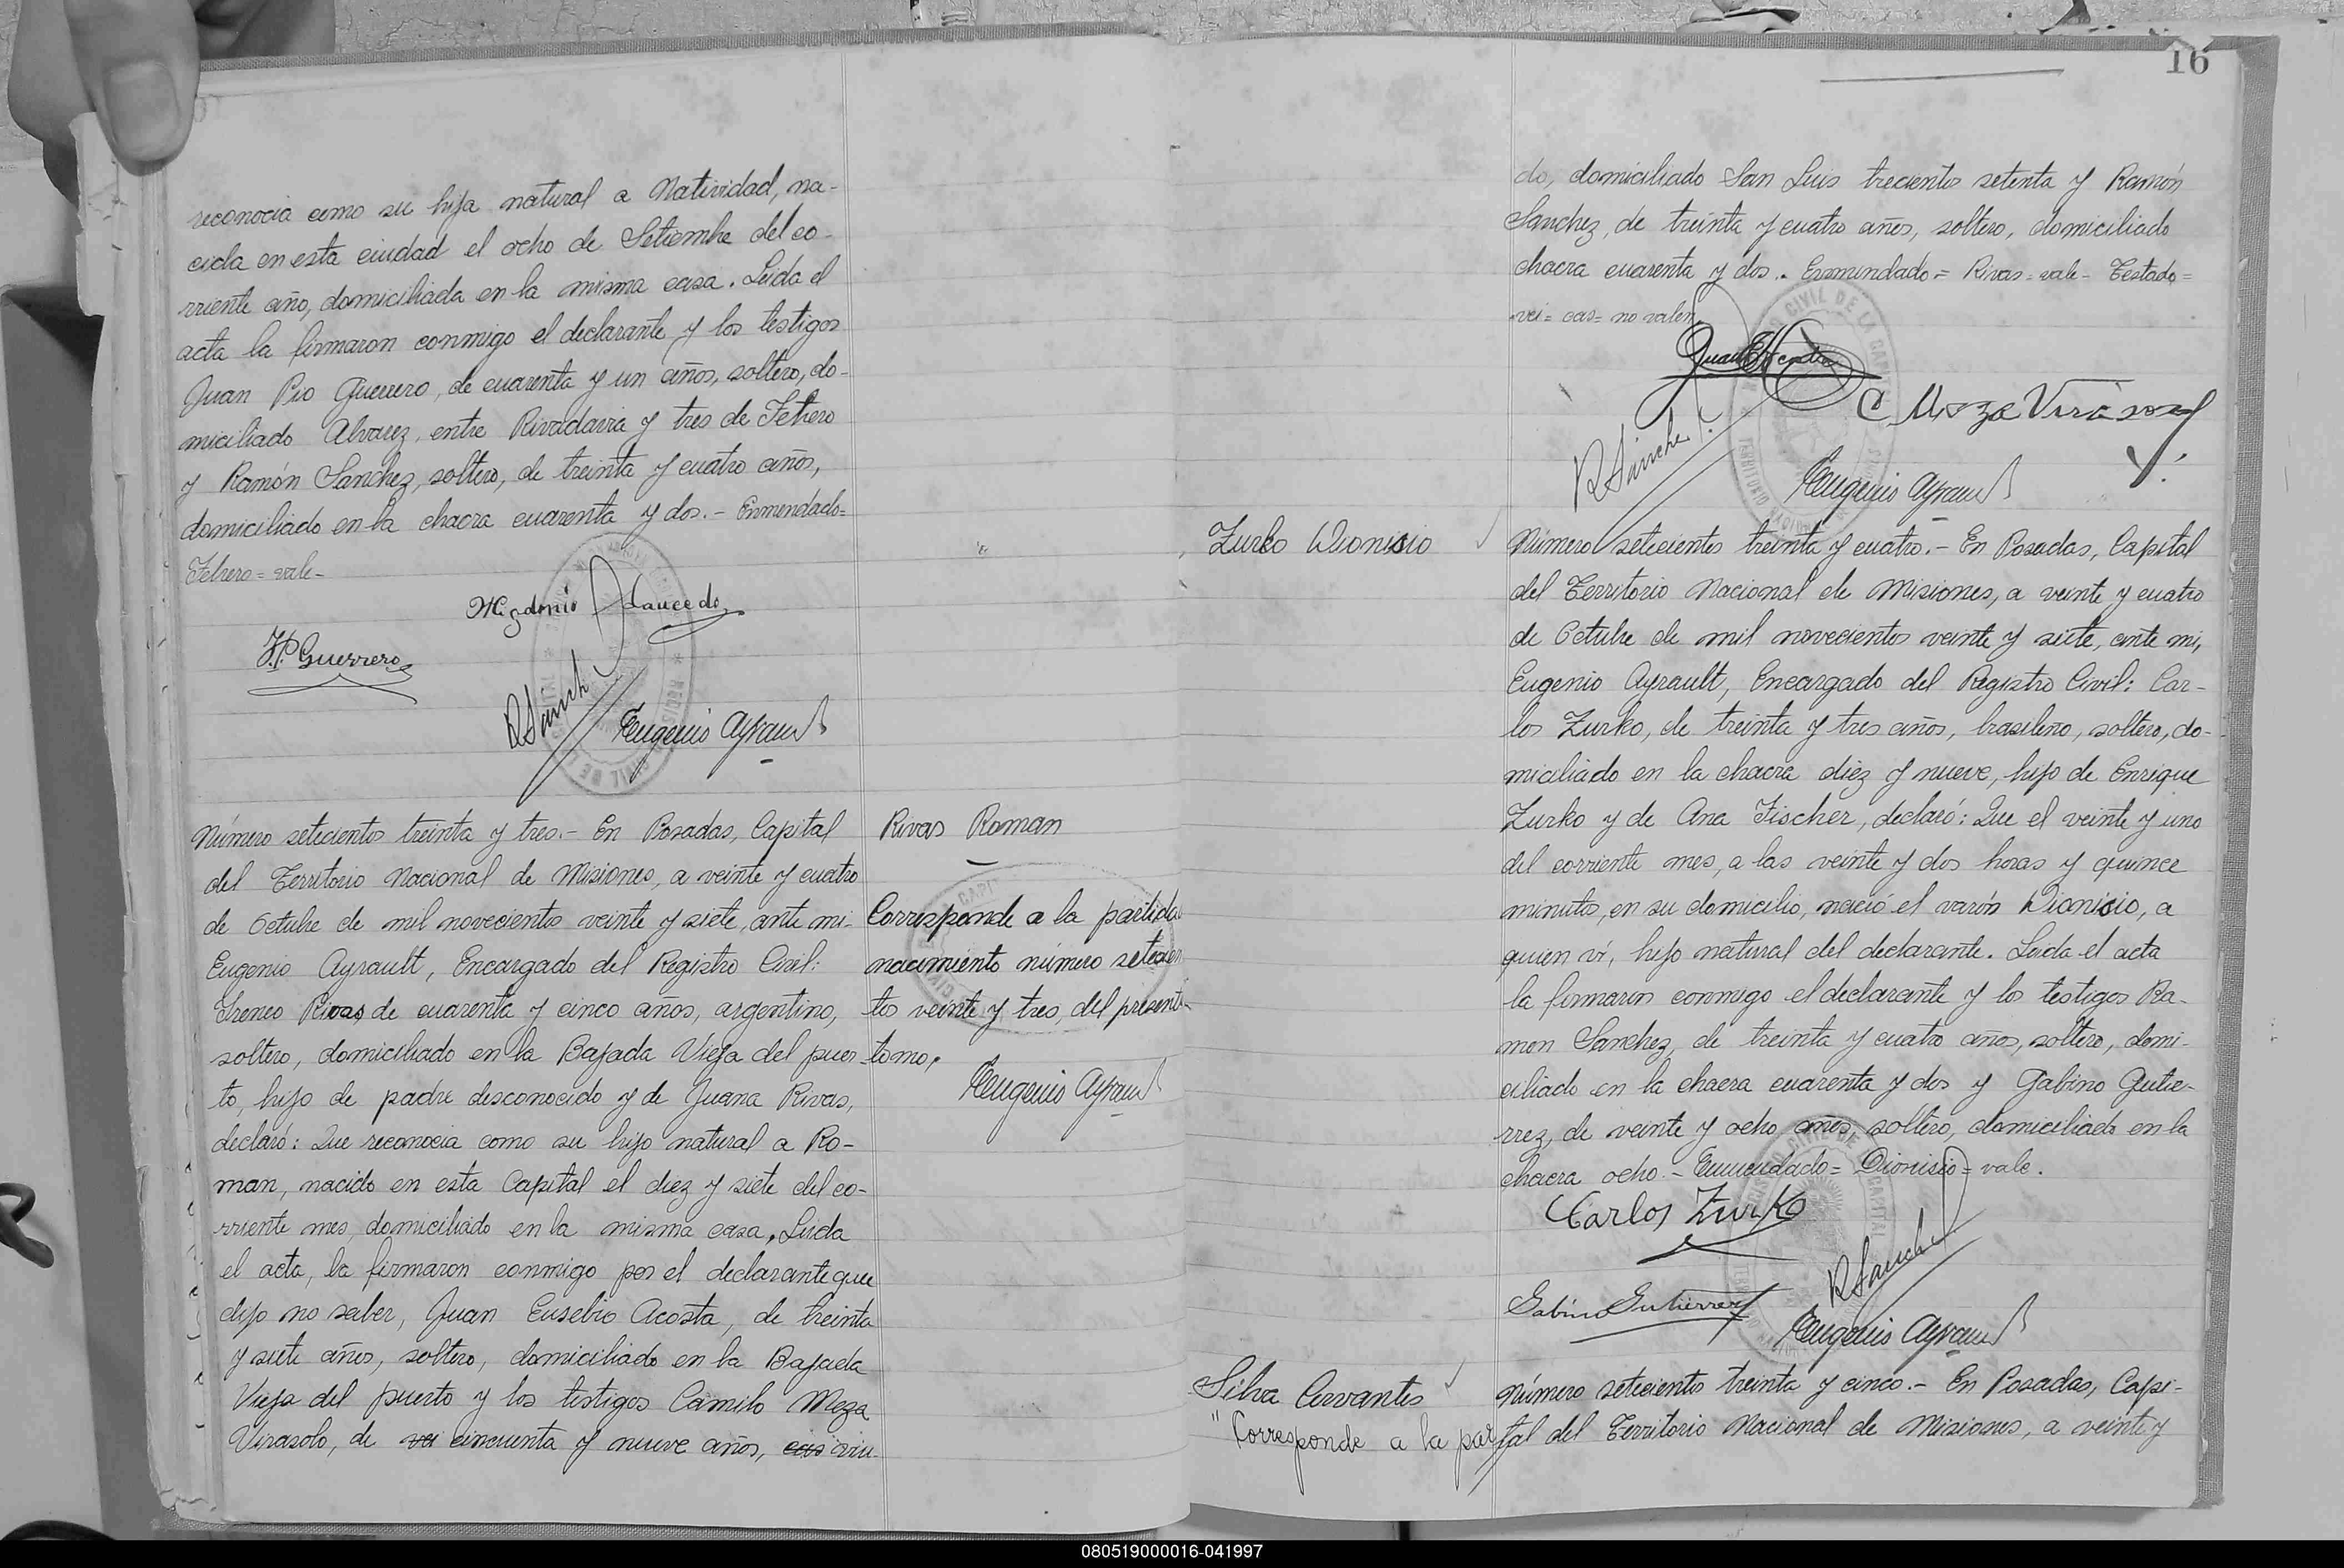 reconocia como su hija natural a Natividad, na-
cida en esta ciudad el ocho de Setiembre del co-
rriente año, domiciliada en la misma casa. Leida el
acta la firmaron conmigo el declarante y los testigos
Juan Pio Guerrero, de cuarenta y un años, soltero, do-
miciliado Alvarez, entre Rivadavia y tres de Febrero
y Ramón Sanchez, soltero, de treinta y cuatro años,
domiciliado en la chacra cuarenta y dos.- Enmendado=
Febrero = vale-
J.P. Guerrero
R Sánchez
Eugenio Ayrault
Número setecientos treinta y tres.- En Posadas, Capital
del Territorio Nacional de Misiones, a veinte y cuatro
de Octubre de mil novecientos veinte y siete, ante mi-
Eugenio Ayrault, Encargado del Registro Civil:
Ireneo Rivas, de cuarenta y cinco años, argentino,
soltero, domiciliado en la Bajada Vieja del puer-
to, hijo de padre desconocido y de Juana Rivas,
declaró: Que reconocia como su hijo natural a Ro-
man, nacido en esta Capital el diez y siete del co-
rriente mes, domiciliado en la misma casa. Leida
el acta, la firmaron conmigo por el declarante que
dijo no saber, Juan Eusebio Acosta, de treinta
y siete años, soltero, domiciliado en la Bajada
Vieja del puerto y los testigos Camilo Meza
Virasolo, de vei cincuenta y nueve años, cas viu-
Rivas Roman
Corresponde a la partida
nacimiento número setecien
tos veinte y tres, del presente
tomo.
Eugenio Ayrault
16
do, domiciliado San Luis trecientos setenta y Ramón
Sanchez, de treinta y cuatro años, soltero, domiciliado
chacra cuarenta y dos.- Enmendado = Rivas = vale - Testado =
vei = cas = no valen
C Meza Virasoro
R Sánchez
Eugenio Ayrault
Zurko Dionisio
Número setecientos treinta y cuatro.- En Posadas, Capital
del Territorio Nacional de Misiones, a veinte y cuatro
de Octubre de mil novecientos veinte y siete, ante mi,
Eugenio Ayrault, Encargado del Registro Civil: Car-
los Zurko, de treinta y tres años, brasileño, soltero, do-
miciliado en la chacra diez y nueve, hijo de Enrique
Zurko y de Ana Fischer, declaró: Que el veinte y uno
del corriente mes, a las veinte y dos horas y quince
minutos, en su domicilio, nació el varón Dionisio, a
quien vi, hijo natural del declarante. Leida el acta
la firmaron conmigo el declarante y los testigos Ra-
mon Sanchez, de treinta y cuatro años, soltero, domi-
ciliado en la chacra cuarenta y dos y Gabino Gutie-
rrez, de veinte y ocho años, soltero, domiciliado en la
chacra ocho.- Enmendado = Dionisio = vale.
Carlos Zurko
R Sanchez
Gabino Gutierrez
Eugenio Ayrault
Silva Cervantes
Número setecientos treinta y cinco.- En Posadas, Capi-
"Corresponde a la par
tal del Territorio Nacional de Misiones, a veinte y
080519000016-041997